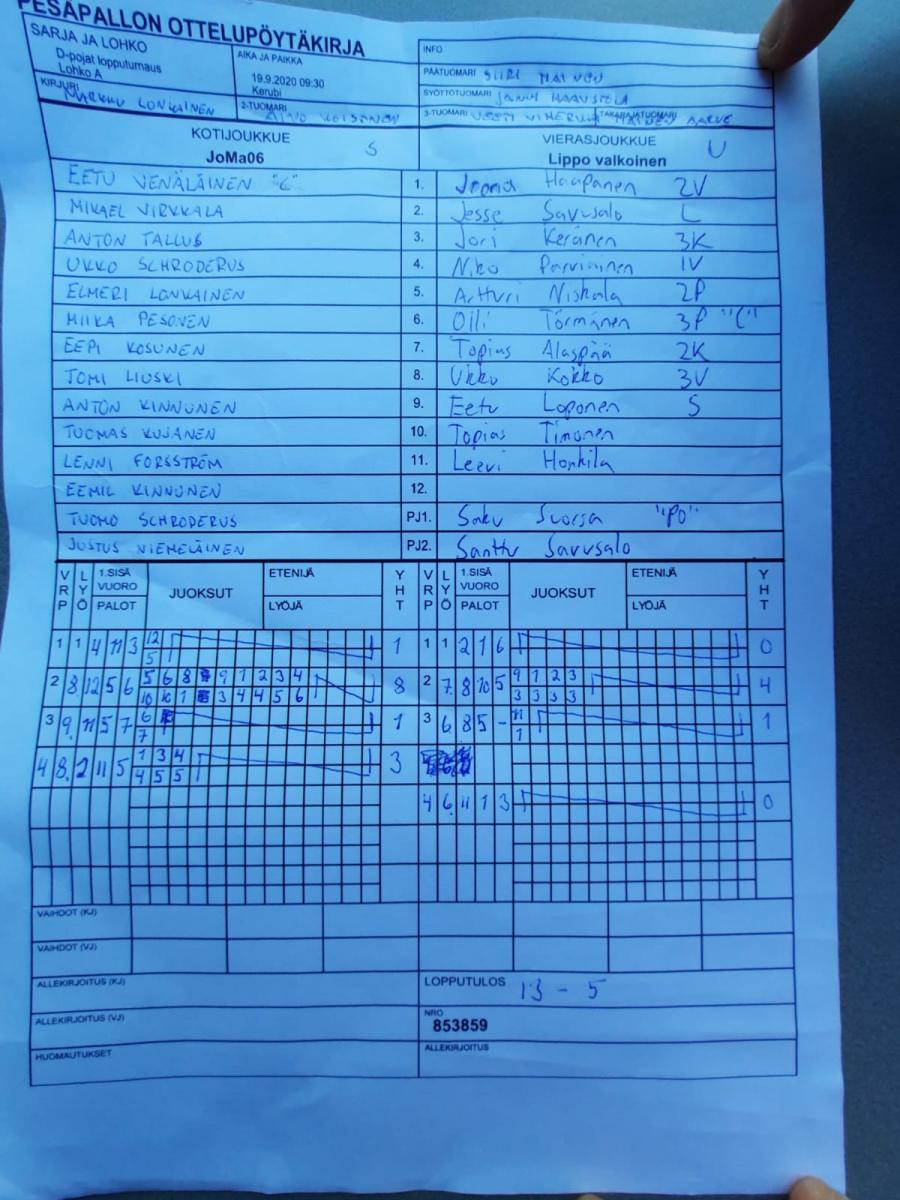 PESÄPALLON OTTELUPÖYTÄKIRJA
SARJA JA LOHKO
D-pojat lopputurnaus
Lohko A
AIKA JA PAIKKA
19.9.2020 09:30
Kerubi
INFO
PÄÄTUOMARI SIIRI MAINEN
SYÖTTÖTUOMARI HAAVISTOLA
KIRJURI MARKKU LONKAINEN
2-TUOMARI AINO KOISTINEN
3-TUOMARI VEETI TAKARAJATUOMARI MAINEN AARVE
KOTIJOUKKUE S
JoMa06
VIERASJOUKKUE U
Lippo valkoinen
EETU VENÄLÄINEN "C" 1. Joona Haapanen 2V
MIKAEL VIRKKALA 2. Jesse Savusalo L
ANTON TALLUS 3. Jori Keränen 3K
UKKO SCHRODERUS 4. Niko Parviainen 1V
ELMERI LONKAINEN 5. Artturi Niskala 2P
MIIKA PESONEN 6. Olli Törmänen 3P "C"
EEPI KOSUNEN 7. Topias Alaspää 2K
JOMI LIUSKI 8. Ukko Kokko 3V
ANTON KINNUNEN 9. Eetu Loponen S
TUOMAS KUJANEN 10. Topias Timonen
LENNI FORSSTRÖM 11. Leevi Honkila
EEMIL KINNUNEN 12.
TUOMO SCHRODERUS PJ1. Saku Suorsa "PO"
JUSTUS NIEMELÄINEN PJ2. Santtu Savusalo
VRP LYÖ 1.SISÄ VUORO PALOT JUOKSUT ETENIJÄ LYÖJÄ YHT VRP LYÖ 1.SISÄ VUORO PALOT JUOKSUT ETENIJÄ LYÖJÄ YHT
1 1 4 11 3 12 1 1 1 2 1 6 0
5
2 8. 12 5 6 5 6 8 9 1 2 3 4 8 2 7. 8 10 5 9 1 2 3 4
10 10 1 3 4 4 5 6 3 3 3 3
3 9. 11 5 7 6 1 3 6 8 5 - 11 1
7 1
4 8. 2 11 5 1 3 4 3
4 5 5
4 6. 11 1 3 0
VAIHDOT (KJ)
VAIHDOT (VJ)
ALLEKIRJOITUS (KJ)
LOPPUTULOS 13 - 5
ALLEKIRJOITUS (VJ)
NRO
853859
HUOMAUTUKSET
ALLEKIRJOITUS